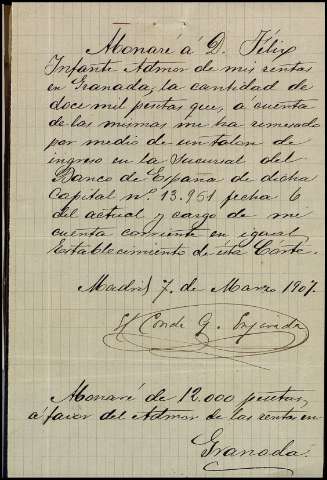 Abonaré á D. Félix
Infante Admor de mis rentas
en Granada, la cantidad de
doce mil pesetas que, a cuenta
de las mismas me ha remesado
por medio de un talon de
ingreso en la Sucursal del
Banco de España de dicha
Capital nº. 13.951 fecha 6
del actual y cargo de mi
cuenta corriente en igual
Establecimiento de ésta Córte.
Madrid 7. de Marzo 1907.
El Conde G.
Abonaré de 12.000 pesetas,
á favor del Admor de las rentas en
Granada.